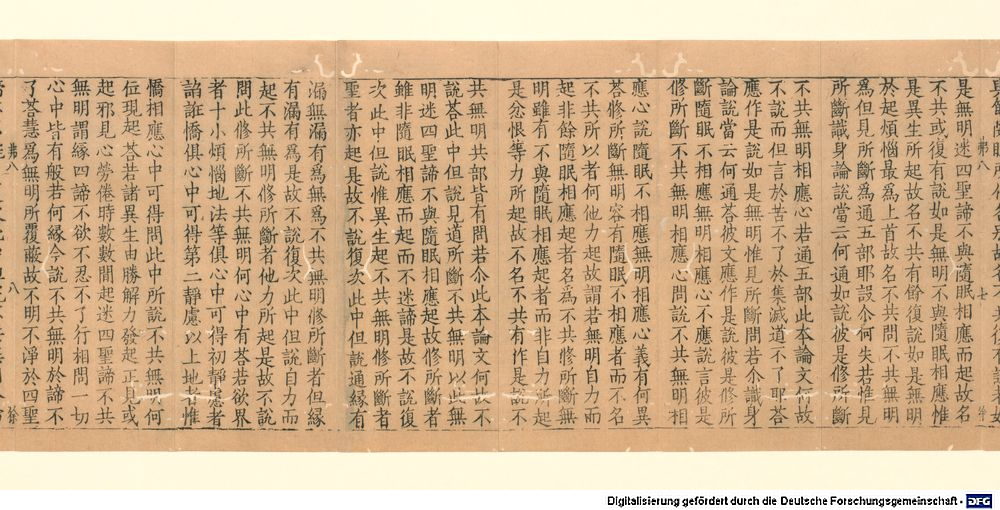 是無明迷四聖諦不與隨眠相應而起故名
不共或復有說如是無明不與隨眠相應惟
是異生所起故名不共有餘復說如是無明
於起煩惱最爲上首故名不共問不共無明
爲但見所斷爲通五部耶設介何失若惟見
所斷識身論說當云何通如說彼是修所斷
不共無明相應心若通五部此本論文何故
不說而但言於苦不了於集滅道不了耶荅
應作是說如是無明惟見所斷問若介識身
論說當云何通荅彼文應作是說彼是修所
斷隨眠不相應無明相應心不應說言彼是
修所斷不共無明相應心問說不共無明相
應心說隨眠不相應無明相應心義有何異
荅修所斷無明容有隨眠不相應者而不名
不共所以者何他力起故謂若無明自力而
起非餘隨眠相應起者名爲不共修所斷無
明雖有不與隨眠相應起者而非自力所起
是忿恨等力所起故不名不共有作是說不
共無明共部皆有問若介此本論文何故不
說荅此中但說見道所斷不共無明以此無
明迷四聖諦不與隨眠相應起故修所斷者
雖非隨眠相應而起而不迷諦是故不說復
次此中但說惟異生起不共無明修所斷者
聖者亦起是故不說復次此中但說通緣有
漏無漏有爲無爲不共無明修所斷者但緣
有漏有爲是故不說復次此中但說自力而
起不共無明修所斷者他力所起是故不說
問此修所斷不共無明何心中有荅若欲界
者十小煩惱地法等俱心中可得初靜慮者
諂誑憍俱心中可得第二靜慮以上地者惟
憍相應心中可得問此中所說不共無明何
位現起荅若諸異生由勝解力發起正見或
起邪見心勞倦時數數間起迷四聖諦不共
無明謂緣四諦不欲不忍不了行相問一切
心中皆有般若何緣今說不共無明於諦不
了荅慧爲無明所覆蔽故不明不淨於四聖
Digitalisierung gefördert durch die Deutsche Forschungsgemeinschaft - DFG